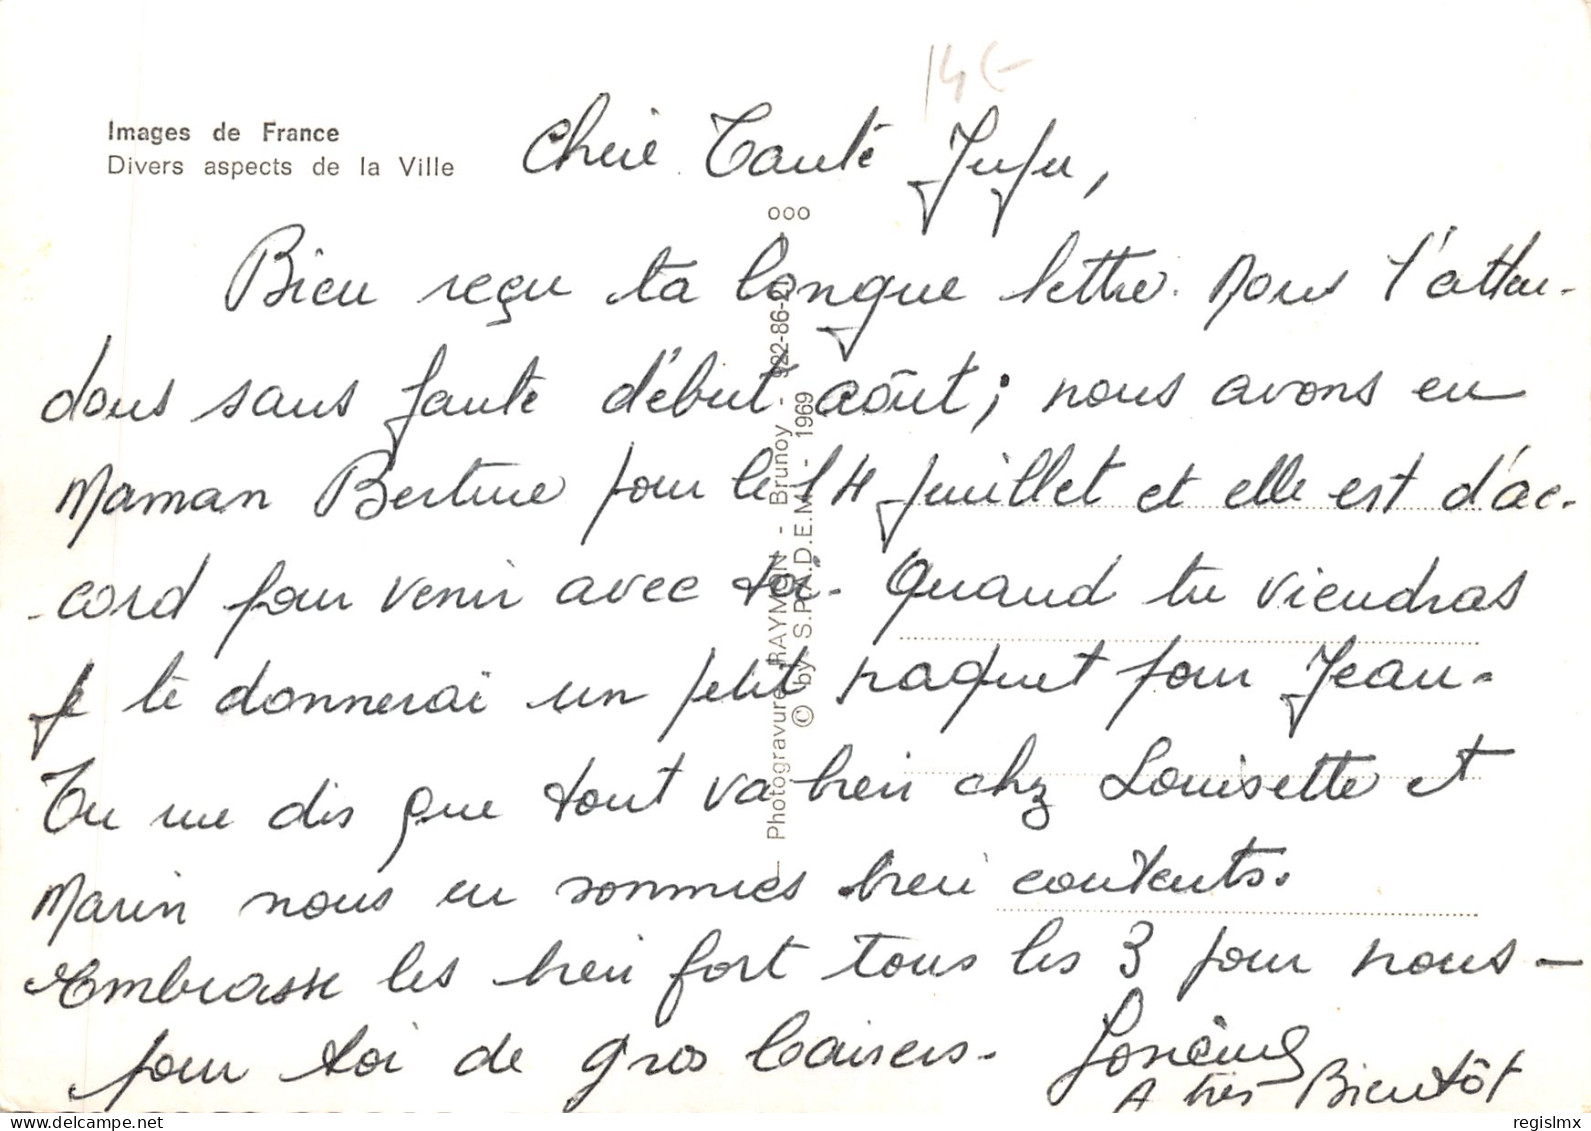 14€
Images de France
Divers aspects de la Ville
Chère Tante Juju,
Bien reçu ta longue lettre. Nous t'atten-
dons sans faute début août; nous avons eu
Maman Berthe pour le 14 juillet et elle est d'ac-
cord pour venir avec toi. Quand tu viendras
je te donnerai un petit paquet pour Jean.
Tu me dis que tout va bien chez Louisette et
Marin nous en sommes bien contents.
Embrasse les bien fort tous les 3 pour nous -
pour toi de gros baisers.
A très Bientôt
Photogravure RAYMON - Brunoy - 922-86-2 ooo
© by S.P.A.D.E.M. - 1969
delcampe.net
regislmx